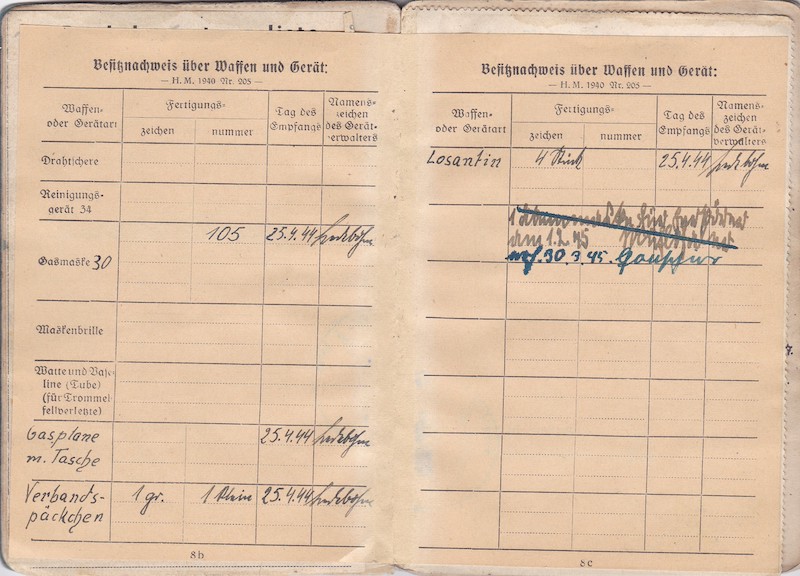 Besitznachweis über Waffen und Gerät:
— H. M. 1940 Nr. 205 —
Waffen- oder Gerätart
Fertigungs-
zeichen nummer
Tag des Empfangs
Namens-zeichen des Gerät-verwalters
Drahtschere
Reinigungs-
gerät 34
Gasmaske 30 105 25.4.44
Maskenbrille
Watte und Vase-
line (Tube)
(für Trommel-
fellverletzte)
Gasplane 25.4.44
m. Tasche
Verbands- 1 gr. 1 klein 25.4.44
päckchen
8b
Besitznachweis über Waffen und Gerät:
— H. M. 1940 Nr. 205 —
Waffen- oder Gerätart
Fertigungs-
zeichen nummer
Tag des Empfangs
Namens-zeichen des Gerät-verwalters
Losantin 4 Stück 25.4.44
am 1.2.45
30.3.45.
8c